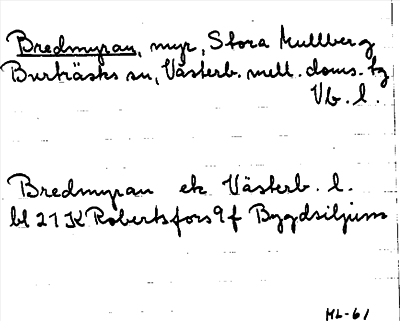 Bredmyran, myr, Stora Mullberg
Burträsks sn, Västerb. mell. doms. tg
Vb. l.
Bredmyran ek Västerb. l.
bl 21 K Robertsfors 9 f Bygdsiljum
ML-61